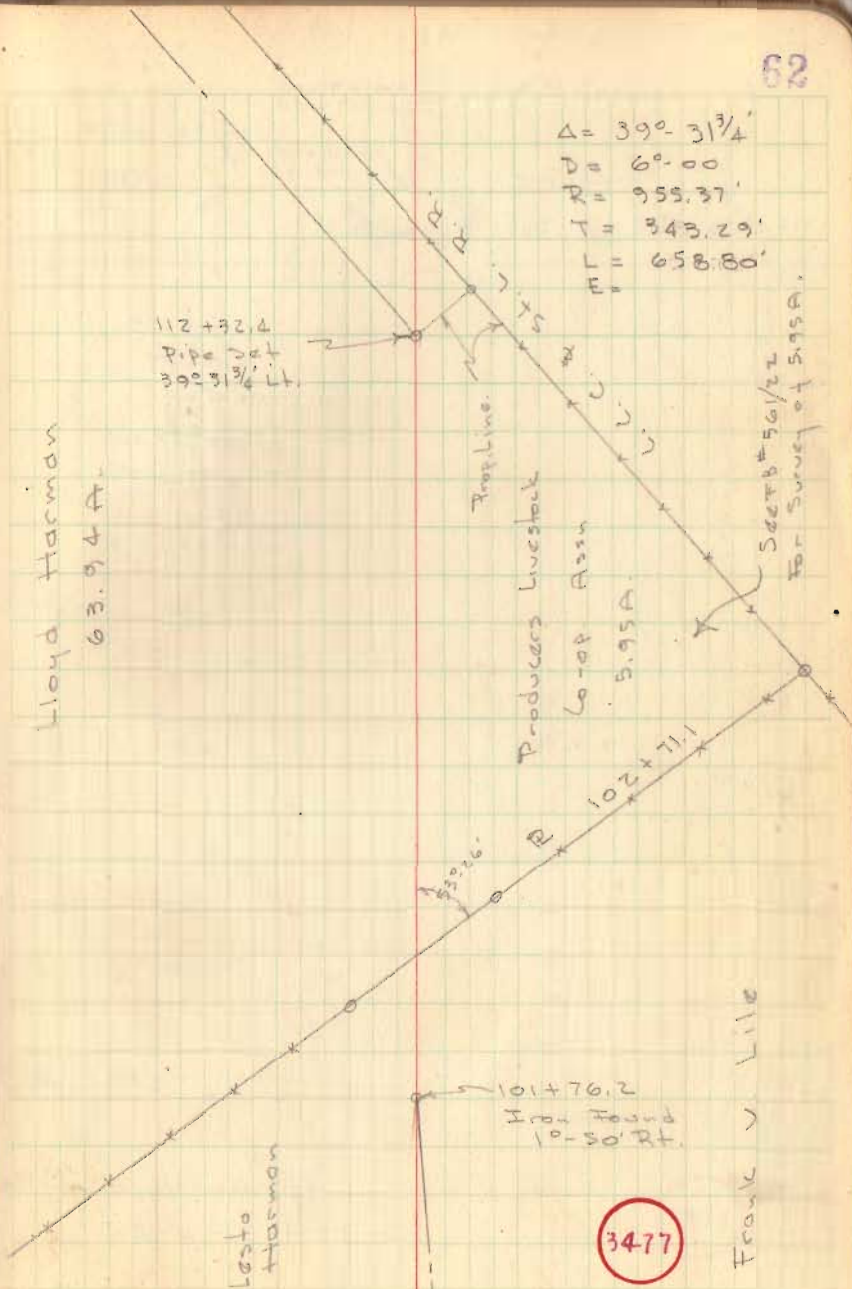 62
Δ = 39°-31 3/4'
D = 6°-00
R = 955.37'
T = 343.29'
L = 658.80'
E =
112 +32.4
Pipe Set
39°-31 3/4' Lt.
Lloyd Harmon
63.94 A.
Prop. Line.
Producers Livestock
Co-op Assn
5.95A.
See FB # 561/22
For Survey of 5.95A.
102 + 71.1
53°-26'
101 + 76.2
Iron Found
1°-50' Rt.
Lesta
Harmon
Frank V. Lile
3477